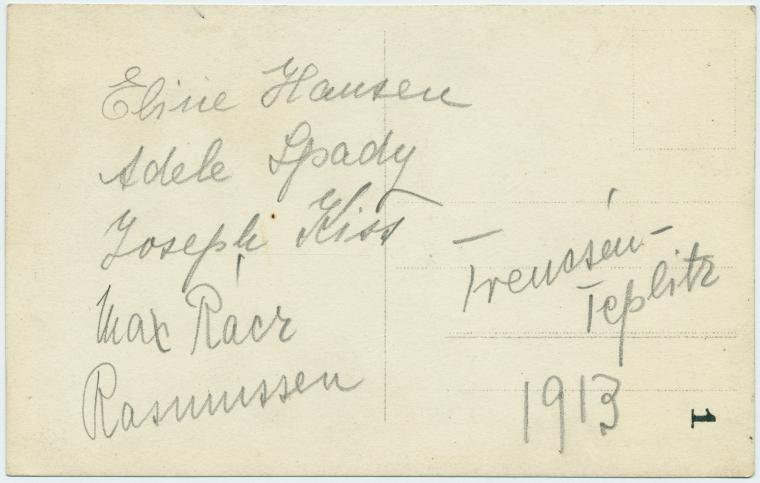 Eline Hansen
Adele Spady
Joseph Kiss
Max Rácz
Rasmussen
Trencsén-
Teplitz
1913
1